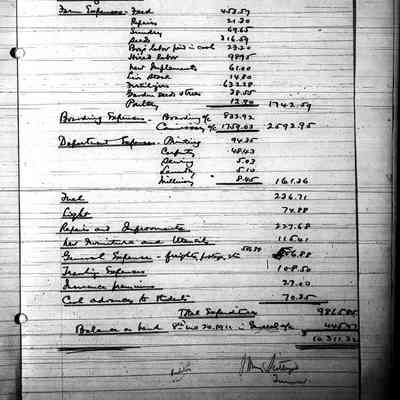 Farm Expenses - Feed 453.57
Repairs 21.20
Sundry 69.65
Seeds 216.59
Boys labor paid in cash 23.20
Hired labor 98.95
New Implements 61.00
Live Stock 14.80
Fertilizers 632.28
Garden seeds & trees 38.55
Poultry 12.90 1742.59
Boarding Expenses - Boarding a/c 833.92
Commissary a/c 1759.03 2592.95
Department Expenses - Printing 94.25
Carpentry 48.43
Sewing 5.03
Laundry 5.10
Millinery 8.45 161.26
Fuel 226.71
Light 74.88
Repairs and Improvements 227.68
New Furniture and Utensils 115.01
General Expenses - freight, postage, etc
Traveling Expenses 108.50
Insurance premiums 27.00
Cash advances to students 70.25
Total Expenditures
Balance on hand
10,311.32